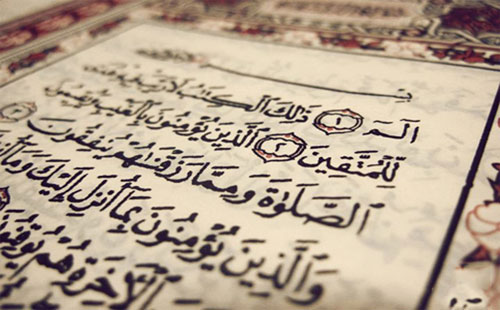 الٓمٓ ١ ذَٰلِكَ ٱلْكِتَٰبُ لَا رَيْبَ فِيهِ هُدًى
لِّلْمُتَّقِينَ ٢ ٱلَّذِينَ يُؤْمِنُونَ بِٱلْغَيْبِ وَيُقِيمُونَ
ٱلصَّلَوٰةَ وَمِمَّا رَزَقْنَٰهُمْ يُنفِقُونَ
وَٱلَّذِينَ يُؤْمِنُونَ بِمَآ أُنزِلَ إِلَيْكَ وَمَآ
ٱلْأَخِرَةِ هُمْ يُوقِنُونَ